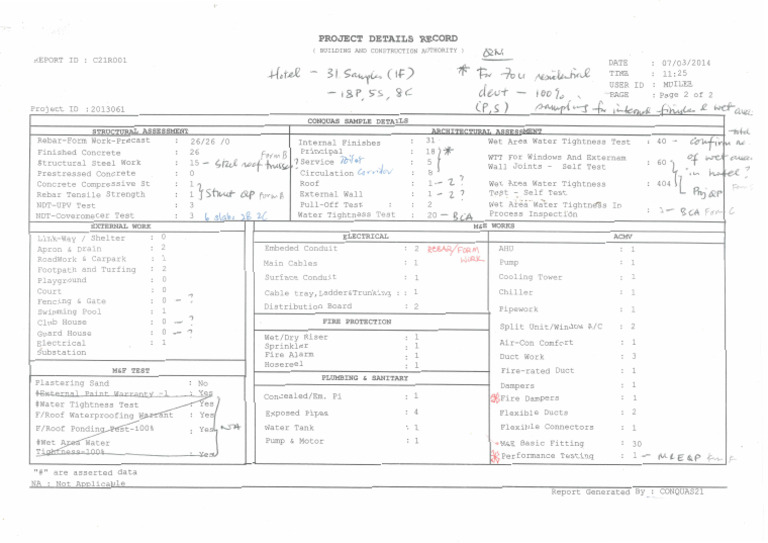 PROJECT DETAILS RECORD
( BUILDING AND CONSTRUCTION AUTHORITY )
REPORT ID : C21R001
DATE : 07/03/2014
TIME : 11:25
USER ID : MUILEE
PAGE : Page 2 of 2
Hotel - 31 Samples (IF)
- 18P, 5S, 8C
* For 704 residential
devt - 100%
(P,S) sampling for internal finishes & wet area
Project ID :2013061
CONQUAS SAMPLE DETAILS
STRUCTURAL ASSESSMENT
Rebar-Form Work-Precast : 26/26 /0
Finished Concrete : 26
Structural Steel Work : 15 - steel roof trusses? Form B
Prestressed Concrete : 0
Concrete Compressive St : 1
Rebar Tensile Strength : 1
Struct QP Form B
NDT-UPV Test : 3
NDT-Covermeter Test : 3 6 slabs 2B 2C
ARCHITECTURAL ASSESSMENT
Internal Finishes : 31
Principal : 18 *
Service Toilet : 5
Circulation Corridor : 8
Roof : 1 - 2 ?
External Wall : 1 - 2 ?
Pull-Off Test : 2
Water Tightness Test : 20 - BCA
Wet Area Water Tightness Test : 40 - confirm no.
WTT For Windows And Externam
Wall Joints - Self Test : 60
Wet Area Water Tightness
Test - Self Test : 404
Wet Area Water Tightness In
Process Inspection : 1 - BCA Form C
total
of wet areas
in hotel?
Proj QP
EXTERNAL WORK
Link-Way / Shelter : 0
Apron & Drain : 2
RoadWork & Carpark : 1
Footpath and Turfing : 2
Playground : 0
Court : 0
Fencing & Gate : 0 - ?
Swimming Pool : 1
Club House : 0 - ?
Guard House : 0 - ?
Electrical : 1
Substation
M&E WORKS
ELECTRICAL
Embeded Conduit : 2 REBAR/FORM
WORK
Main Cables : 1
Surface Conduit : 1
Cable tray,Ladder&Trunking : : 1
Distribution Board : 2
FIRE PROTECTION
Wet/Dry Riser : 1
Sprinkler : 1
Fire Alarm : 1
Hosereel : 1
PLUMBING & SANITARY
Concealed/Em. Pi : 1
Exposed Pipes : 4
Water Tank : 1
Pump & Motor : 1
ACMV
AHU : 1
Pump : 1
Cooling Tower : 1
Chiller : 1
Pipework : 1
Split Unit/Window A/C : 2
Air-Con Comfort : 1
Duct Work : 3
Fire-rated Duct : 1
Dampers : 1
Fire Dampers : 1
Flexible Ducts : 2
Flexible Connectors : 1
M&E Basic Fitting : 30
Performance Testing : 1 - M&E QP Form F
M&F TEST
Plastering Sand : No
#External Paint Warranty -1 : Yes
#Water Tightness Test : Yes
F/Roof Waterproofing Warrant : Yes
F/Roof Ponding Test-100% : Yes
#Wet Area Water
Tightness-100% : Yes
NA
"#" are asserted data
NA : Not Applicable
Report Generated By : CONQUAS21